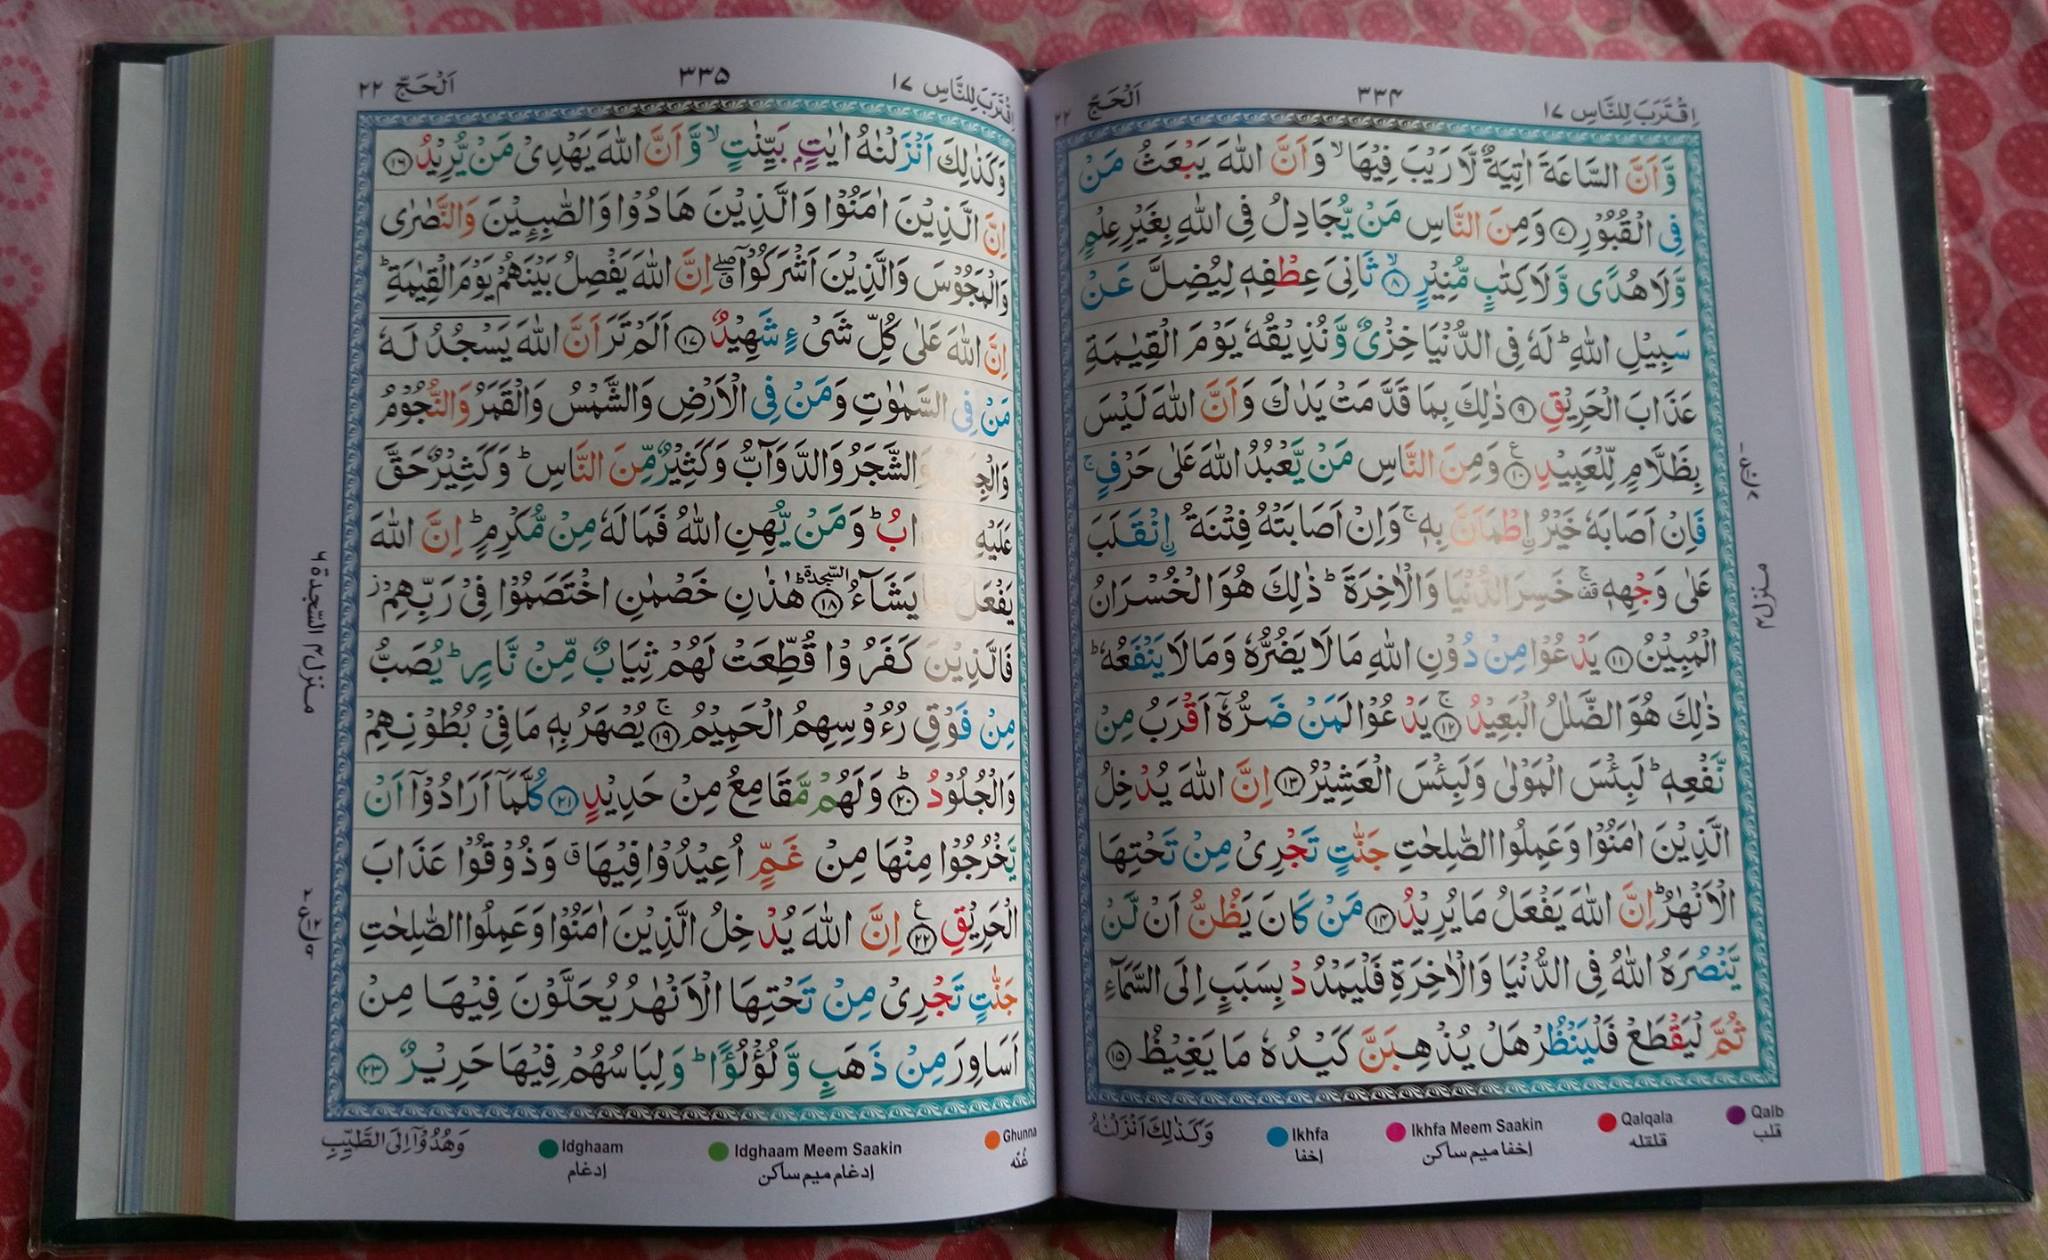 اِقْتَرَبَ لِلنَّاسِ ١٧
٣٣۴
اَلْحَجّ ٢٢
وَّاَنَّ السَّاعَةَ اٰتِيَةٌ لَّا رَيْبَ فِيْهَا ۙ وَاَنَّ اللّٰهَ يَبْعَثُ مَنْ
فِى الْقُبُوْرِ ٧ وَمِنَ النَّاسِ مَنْ يُّجَادِلُ فِى اللّٰهِ بِغَيْرِ عِلْمٍ
وَّلَا هُدًى وَّلَا كِتٰبٍ مُّنِيْرٍ ۙ ٨ ثَانِىَ عِطْفِهٖ لِيُضِلَّ عَنْ
سَبِيْلِ اللّٰهِ ؕ لَهٗ فِى الدُّنْيَا خِزْىٌ وَّنُذِيْقُهٗ يَوْمَ الْقِيٰمَةِ
عَذَابَ الْحَرِيْقِ ٩ ذٰلِكَ بِمَا قَدَّمَتْ يَدٰكَ وَاَنَّ اللّٰهَ لَيْسَ
بِظَلَّامٍ لِّلْعَبِيْدِ ١٠ وَمِنَ النَّاسِ مَنْ يَّعْبُدُ اللّٰهَ عَلٰى حَرْفٍ ۚ
فَاِنْ اَصَابَهٗ خَيْرُ ۨاطْمَاَنَّ بِهٖ ۚ وَاِنْ اَصَابَتْهُ فِتْنَةُ ۨانْقَلَبَ
عَلٰى وَجْهِهٖ ۚ خَسِرَ الدُّنْيَا وَالْاٰخِرَةَ ؕ ذٰلِكَ هُوَ الْخُسْرَانُ
الْمُبِيْنُ ١١ يَدْعُوْا مِنْ دُوْنِ اللّٰهِ مَا لَا يَضُرُّهٗ وَمَا لَا يَنْفَعُهٗ ؕ
ذٰلِكَ هُوَ الضَّلٰلُ الْبَعِيْدُ ۚ ١٢ يَدْعُوْا لَمَنْ ضَرُّهٗۤ اَقْرَبُ مِنْ
نَّفْعِهٖ ؕ لَبِئْسَ الْمَوْلٰى وَلَبِئْسَ الْعَشِيْرُ ١٣ اِنَّ اللّٰهَ يُدْخِلُ
الَّذِيْنَ اٰمَنُوْا وَعَمِلُوا الصّٰلِحٰتِ جَنّٰتٍ تَجْرِىْ مِنْ تَحْتِهَا
الْاَنْهٰرُ ؕ اِنَّ اللّٰهَ يَفْعَلُ مَا يُرِيْدُ ١۴ مَنْ كَانَ يَظُنُّ اَنْ لَّنْ
يَّنْصُرَهُ اللّٰهُ فِى الدُّنْيَا وَالْاٰخِرَةِ فَلْيَمْدُدْ بِسَبَبٍ اِلَى السَّمَآءِ
ثُمَّ لْيَقْطَعْ فَلْيَنْظُرْ هَلْ يُذْهِبَنَّ كَيْدُهٗ مَا يَغِيْظُ ١۵
منزل۴
وَكَذٰلِكَ اَنْزَلْنٰهُ
Ikhfa
إخفا
Ikhfa Meem Saakin
إخفا ميم ساكن
Qalqala
قلقله
Qalb
قلب
اِقْتَرَبَ لِلنَّاسِ ١٧
٣٣۵
اَلْحَجّ ٢٢
وَكَذٰلِكَ اَنْزَلْنٰهُ اٰيٰتٍۭ بَيِّنٰتٍ ۙ وَّاَنَّ اللّٰهَ يَهْدِىْ مَنْ يُّرِيْدُ ١٦
اِنَّ الَّذِيْنَ اٰمَنُوْا وَالَّذِيْنَ هَادُوْا وَالصّٰبِـِٕيْنَ وَالنَّصٰرٰى
وَالْمَجُوْسَ وَالَّذِيْنَ اَشْرَكُوْۤا ۖ اِنَّ اللّٰهَ يَفْصِلُ بَيْنَهُمْ يَوْمَ الْقِيٰمَةِ ؕ
اِنَّ اللّٰهَ عَلٰى كُلِّ شَىْءٍ شَهِيْدٌ ١٧ اَلَمْ تَرَ اَنَّ اللّٰهَ يَسْجُدُ لَهٗ
مَنْ فِى السَّمٰوٰتِ وَمَنْ فِى الْاَرْضِ وَالشَّمْسُ وَالْقَمَرُ وَالنُّجُوْمُ
وَالشَّجَرُ وَالدَّوَآبُّ وَكَثِيْرٌ مِّنَ النَّاسِ ؕ وَكَثِيْرٌ حَقَّ
عَلَيْهِ وَمَنْ يُّهِنِ اللّٰهُ فَمَا لَهٗ مِنْ مُّكْرِمٍ ؕ اِنَّ اللّٰهَ
يَفْعَلُ يَشَآءُ السَّجدة ١٨ هٰذٰنِ خَصْمٰنِ اخْتَصَمُوْا فِىْ رَبِّهِمْ ز
فَالَّذِيْنَ كَفَرُوْا قُطِّعَتْ لَهُمْ ثِيَابٌ مِّنْ نَّارٍ ؕ يُصَبُّ
مِنْ فَوْقِ رُءُوْسِهِمُ الْحَمِيْمُ ۚ ١٩ يُصْهَرُ بِهٖ مَا فِىْ بُطُوْنِهِمْ
وَالْجُلُوْدُ ؕ ٢٠ وَلَهُمْ مَّقَامِعُ مِنْ حَدِيْدٍ ٢١ كُلَّمَاۤ اَرَادُوْۤا اَنْ
يَّخْرُجُوْا مِنْهَا مِنْ غَمٍّ اُعِيْدُوْا فِيْهَا ق وَذُوْقُوْا عَذَابَ
الْحَرِيْقِ ٢٢ اِنَّ اللّٰهَ يُدْخِلُ الَّذِيْنَ اٰمَنُوْا وَعَمِلُوا الصّٰلِحٰتِ
جَنّٰتٍ تَجْرِىْ مِنْ تَحْتِهَا الْاَنْهٰرُ يُحَلَّوْنَ فِيْهَا مِنْ
اَسَاوِرَ مِنْ ذَهَبٍ وَّلُؤْلُؤًا ؕ وَلِبَاسُهُمْ فِيْهَا حَرِيْرٌ ٢٣
منزل۴ السَّجدة ٦
وَهُدُوْۤا اِلَى الطَّيِّبِ
Idghaam
إدغام
Idghaam Meem Saakin
إدغام ميم ساكن
Ghunna
غُنّه